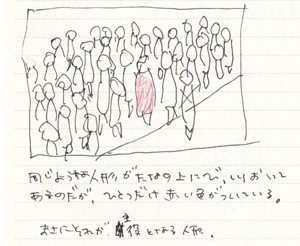 同じような人形がたなの上にびっしりおいて
あるのだが、ひとつだけ赤い色がついている。
まさにそれが主役となる人形。